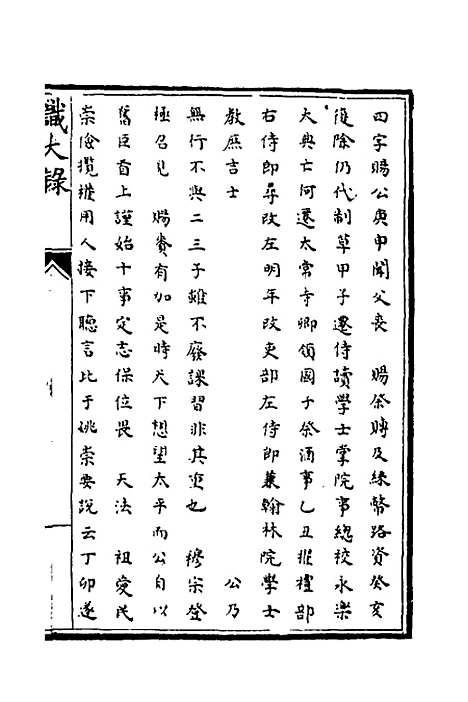 四字賜公庚申聞父喪　賜祭賻及絲幣路資癸亥
復除仍代制草甲子遷侍讀學士掌院事總校永樂
大典亡何遷太常寺卿領國子祭酒事乙丑擢禮部
右侍郎尋改左明年改吏部左侍郎兼翰林院學士
教庶吉士　公乃
無行不與二三子雖不廢課習非其重也　穆宗登
極召見　賜賚有加是時天下想望太平而公自以
舊臣首上謹始十事定志保位畏　天法　祖愛民
崇儉攬權用人接下聽言比于姚崇要說云丁卯遂
識大錄